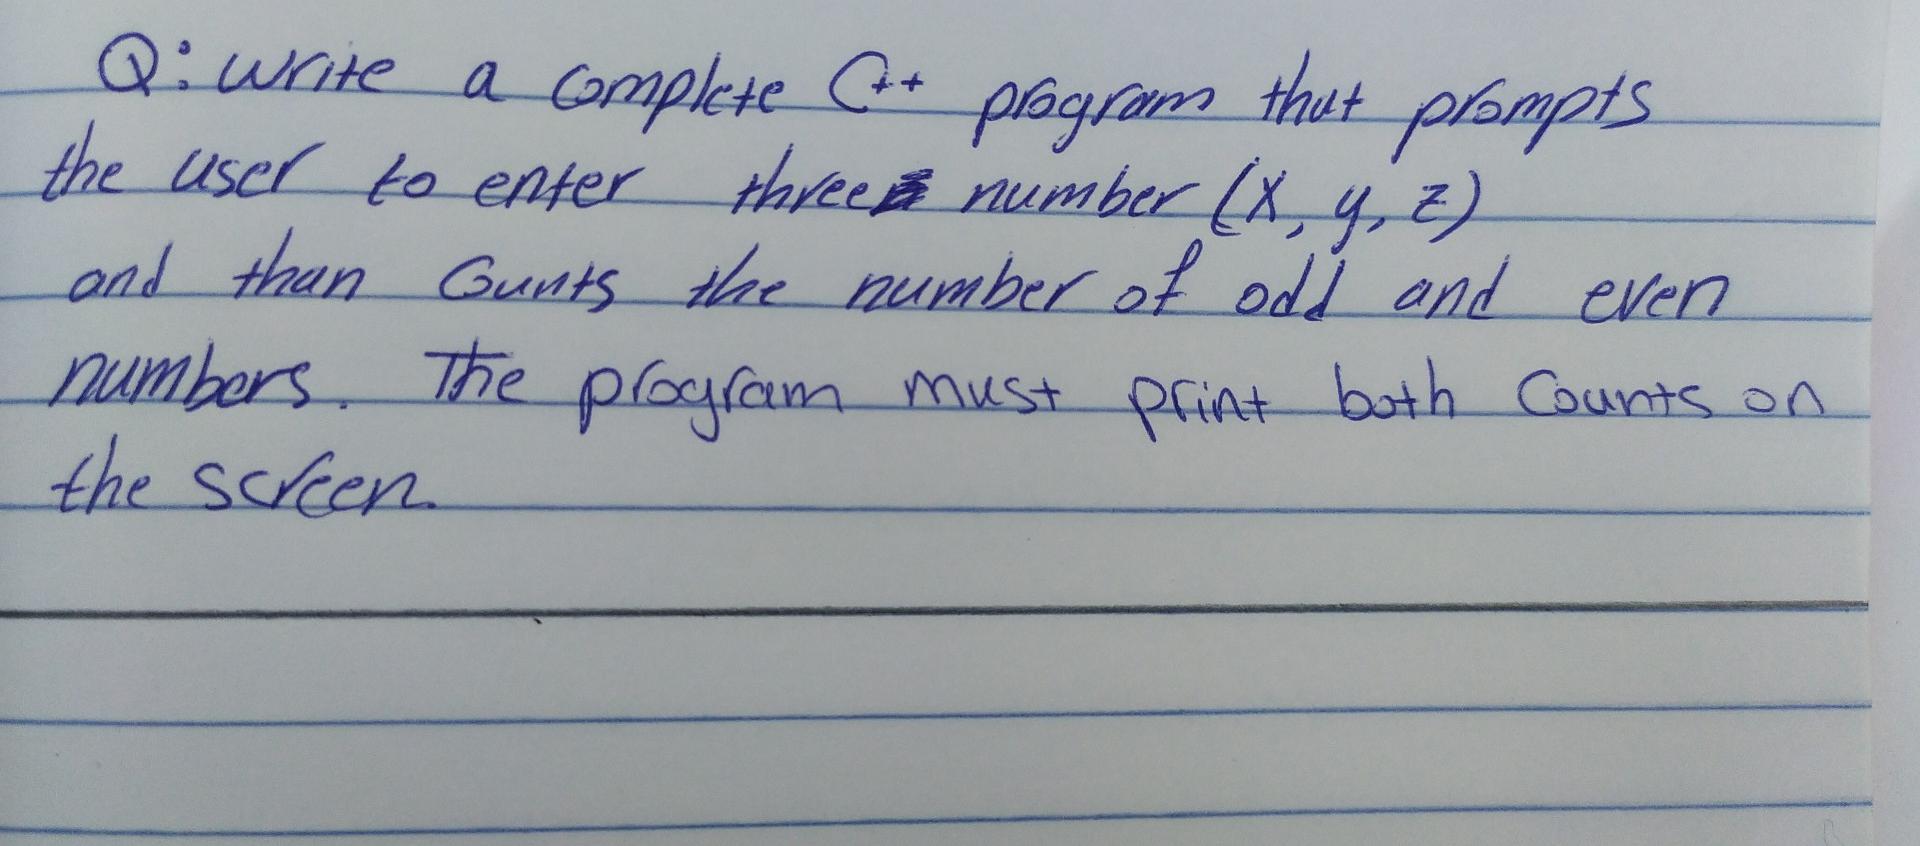 Q: write a complete C++ program that prompts
the user to enter three number (x, y, z)
and than Counts the number of odd and even
numbers. The program must print both Counts on
the screen.